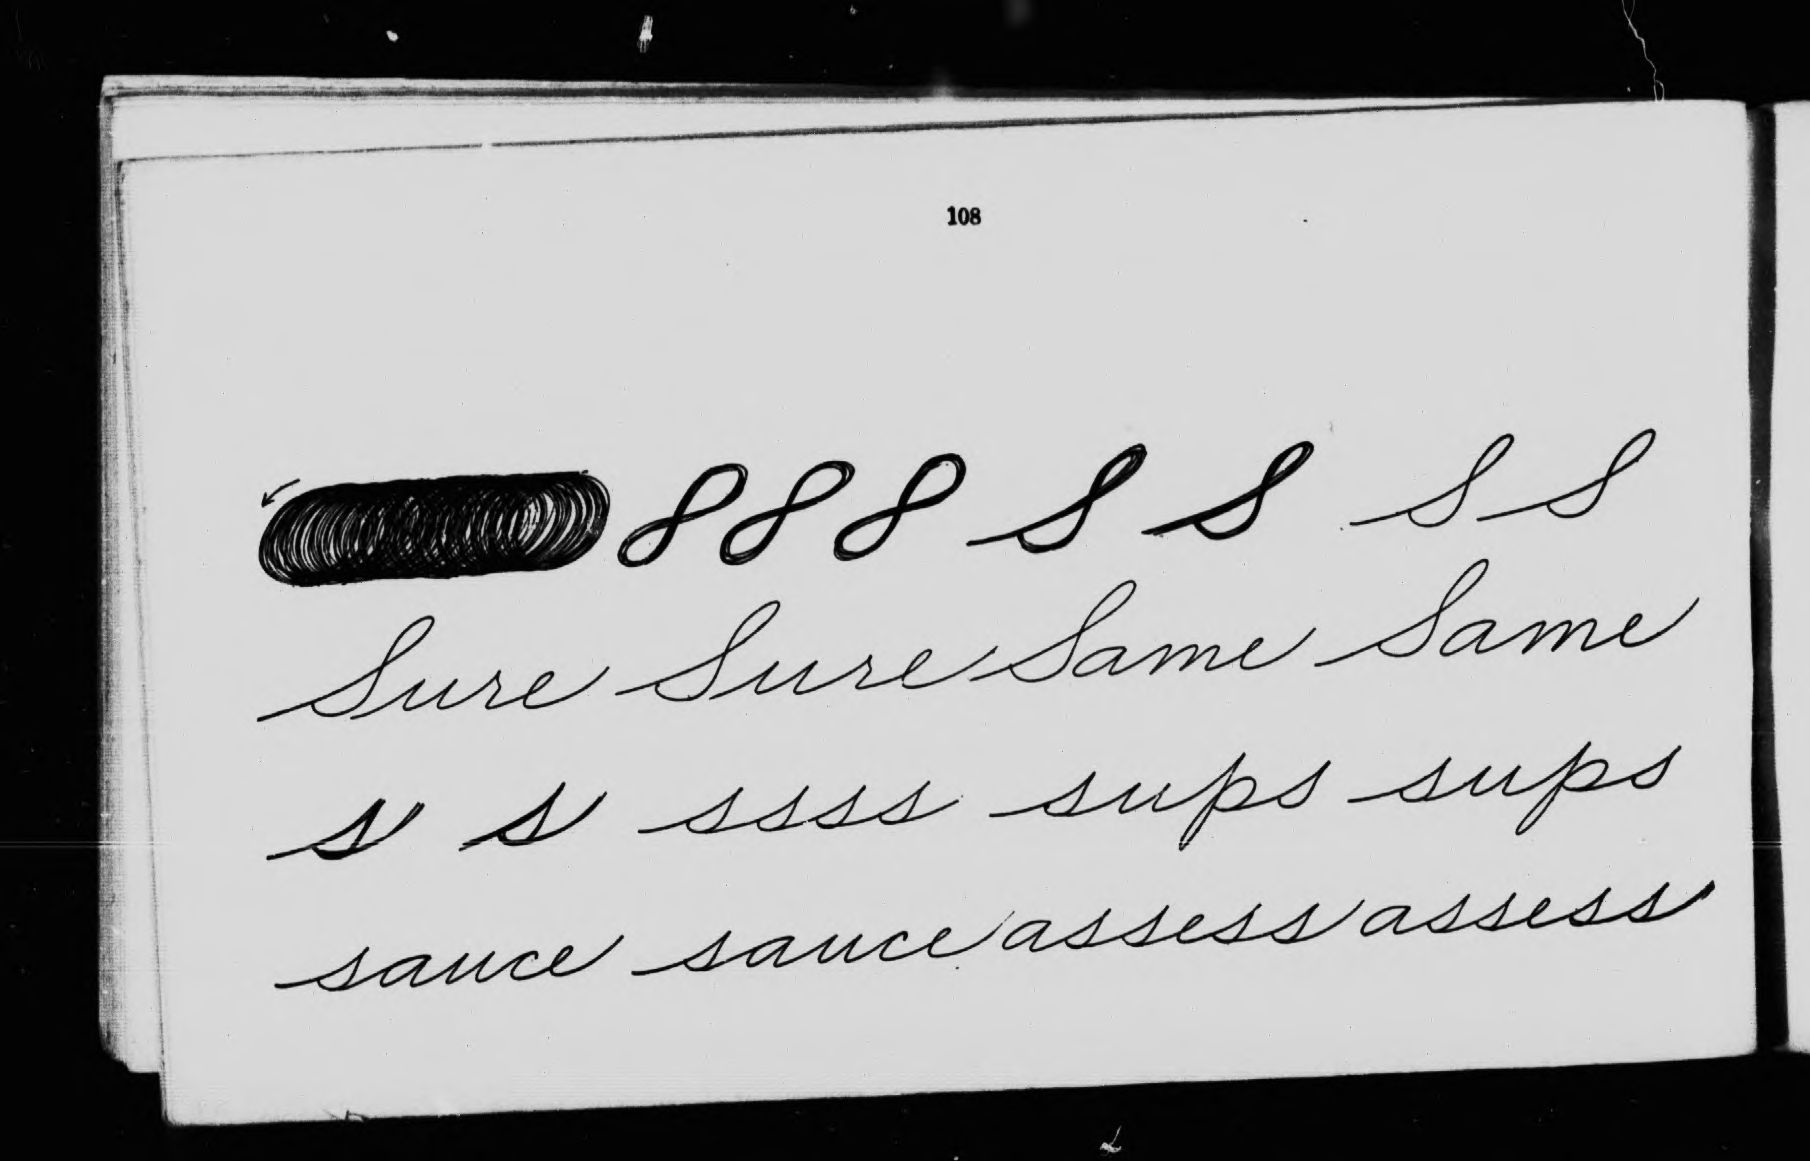 108
8 8 8 S S S S
Sure Sure Same Same
s s ssss sups sups
sauce sauce assess assess